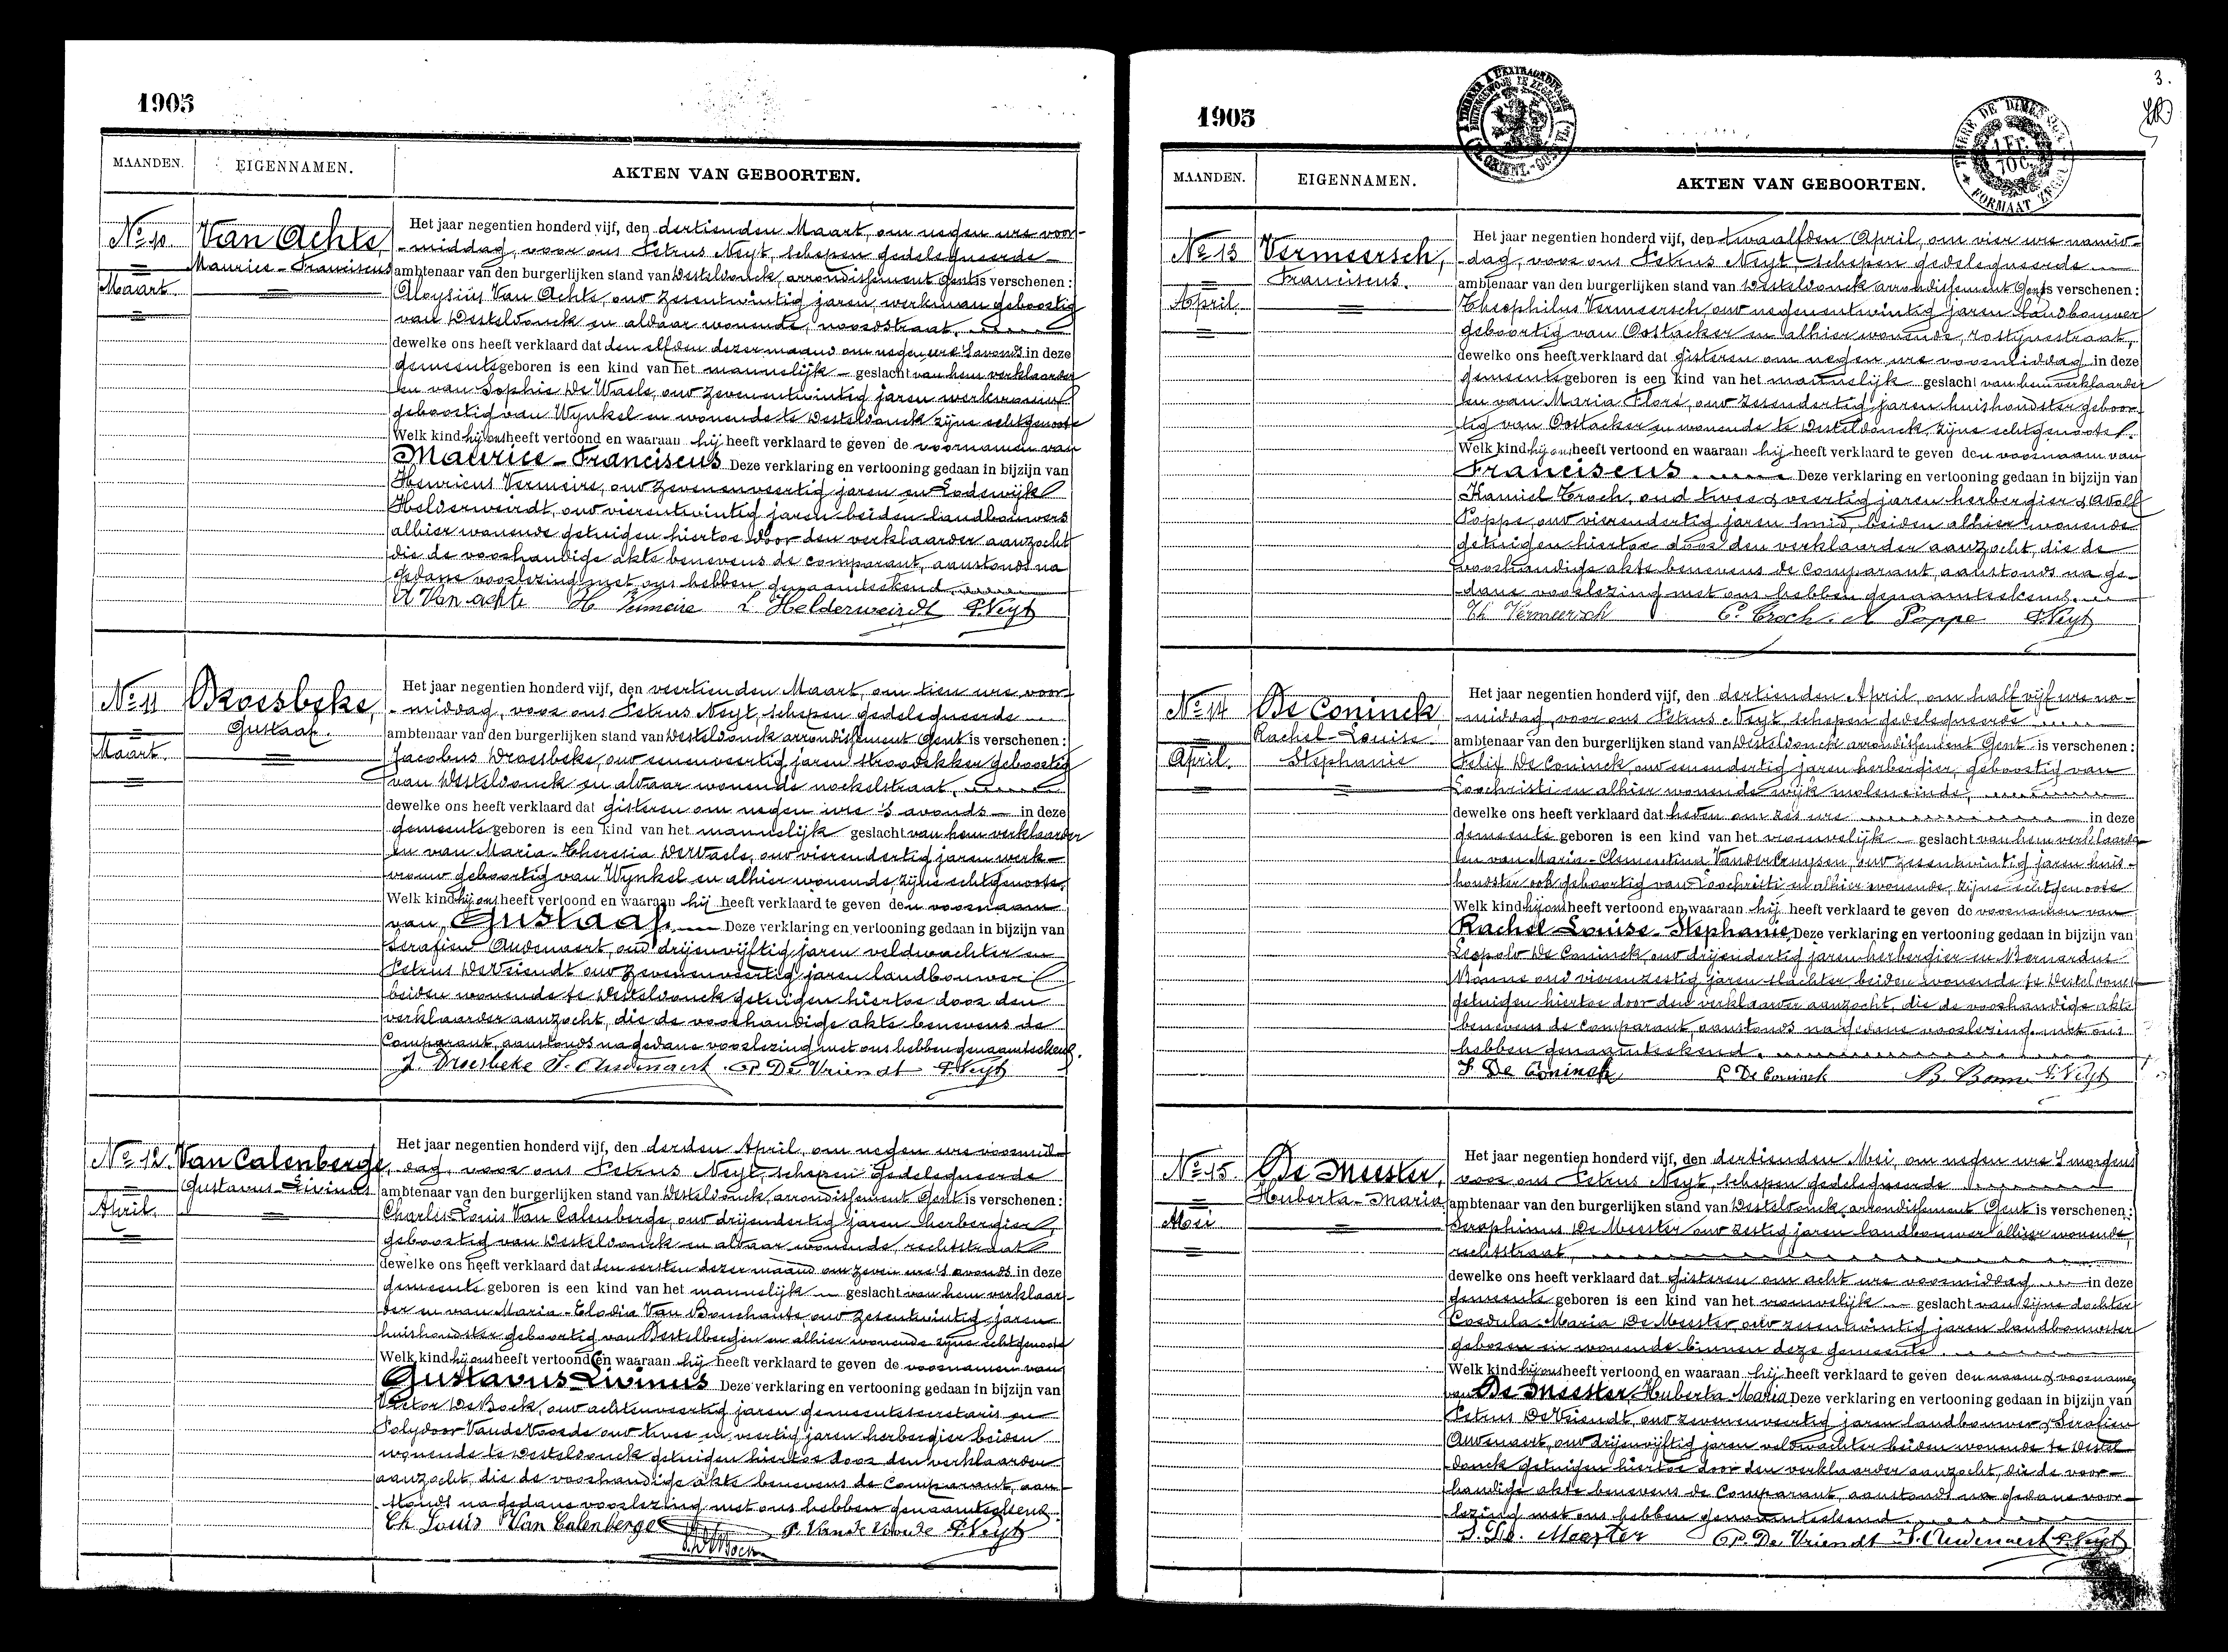 1905
MAANDEN.
EIGENNAMEN.
AKTEN VAN GEBOORTEN.
No 10
Maart.
Van Achte,
Maurice-Franciscus
Het jaar negentien honderd vijf, den dertienden Maart, om negen ure voor-
-middag, voor ons Petrus Neyt, schepen gedelegueerde
ambtenaar van den burgerlijken stand van Desteldonck, arrondissement Gent is verschenen:
Aloysius Van Achte, oud zesentwintig jaren, werkman geboortig
van Desteldonck en aldaar wonende, noordstraat.
dewelke ons heeft verklaard dat den elfden dezer maand om negen ure 's avonds in deze
gemeente geboren is een kind van het mannelijk geslacht van hem verklaarder
en van Sophie De Waele, oud zevenentwintig jaren werkvrouw
geboortig van Wynkel en wonende te Desteldonck zijne echtgenoote
Welk kind hij ons heeft vertoond en waaraan hij heeft verklaard te geven de voornamen van
Maurice-Franciscus Deze verklaring en vertooning gedaan in bijzijn van
Henricus Vermeire, oud zevenenveertig jaren en Lodewijk
Helderweirdt, oud vierentwintig jaren beiden landbouwers
alhier wonende getuigen hiertoe door den verklaarder aanzocht
die de voorhandige akte benevens de comparant, aanstonds na
gedane voorlezing met ons hebben genaamteekend.
A Van achte H Vermeire L Helderweirdt P. Neyt
No 11
Maart.
Droesbeke,
Gustaaf.
Het jaar negentien honderd vijf, den veertienden Maart, om tien ure voor-
-middag, voor ons Petrus Neyt, schepen gedelegueerde
ambtenaar van den burgerlijken stand van Desteldonck arrondissement Gent is verschenen:
Jacobus Droesbeke, oud eenenveertig jaren stroodekker geboortig
van Desteldonck en aldaar wonende nockelstraat.
dewelke ons heeft verklaard dat gisteren om negen ure 's avonds in deze
gemeente geboren is een kind van het mannelijk geslacht van hem verklaarder
en van Maria-Theresia De Waele, oud vierendertig jaren werk-
vrouw geboortig van Wynkel en alhier wonende, zijne echtgenoote.
Welk kind hij ons heeft vertoond en waaraan hij heeft verklaard te geven den voornaam
van Gustaaf. Deze verklaring en vertooning gedaan in bijzijn van
Serafien Audenaert, oud drijenvijftig jaren veldwachter en
Petrus De Vriendt oud zevenenveertig jaren landbouwer
beiden wonende te Desteldonck getuigen hiertoe door den
verklaarder aanzocht, die de voorhandige akte benevens de
Comparant, aanstonds na gedane voorlezing met ons hebben genaamteekend.
J. Droesbeke S. Audenaert P. De Vriendt P. Neyt
No 12.
April.
Van Calenberge,
Gustavus-Livinus
Het jaar negentien honderd vijf, den derden April, om negen ure voormid-
dag, voor ons Petrus Neyt, schepen Gedelegueerde
ambtenaar van den burgerlijken stand van Desteldonck, arrondissement Gent is verschenen:
Charles-Louis Van Calenberge, oud drijendertig jaren herbergier,
geboortig van Desteldonck en aldaar wonende, rechtstraat
dewelke ons heeft verklaard dat den eersten dezer maand om zeven ure 's avonds in deze
gemeente geboren is een kind van het mannelijk geslacht van hem verklaar-
der en van Maria-Elodia Van Bouchaute oud zesentwintig jaren
huishoudster geboortig van Destelbergen en alhier wonende zijne echtgenoote
Welk kind hij ons heeft vertoond en waaraan hij heeft verklaard te geven de voornamen van
Gustavus-Livinus Deze verklaring en vertooning gedaan in bijzijn van
Victor De Bock, oud achtenveertig jaren gemeentesecretaris en
Polydoor Vande Voorde oud twee en veertig jaren herbergier beiden
wonende te Desteldonck getuigen hiertoe door den verklaarder
aanzocht, die de voorhandige akte benevens de Comparant, aan-
stonds na gedane voorlezing met ons hebben genaamteekend.
Ch Louis Van Calenberge P. Vande Voorde P. Neyt
3.
1905
MAANDEN.
EIGENNAMEN.
AKTEN VAN GEBOORTEN.
No 13
April.
Vermeersch,
Franciscus.
Het jaar negentien honderd vijf, den twaalfden April, om vier ure namid-
dag, voor ons Petrus Neyt, schepen gedelegueerde
ambtenaar van den burgerlijken stand van Desteldonck arrondissement Gent is verschenen:
Theophilus Vermeersch, oud negenentwintig jaren landbouwer
geboortig van Oostacker en alhier wonende, rostijnestraat,
dewelke ons heeft verklaard dat gisteren om negen ure voormiddag in deze
gemeente geboren is een kind van het mannelijk geslacht van hem verklaarder
en van Maria Floré, oud zesendertig jaren huishoudster geboor-
tig van Oostacker en wonende te Desteldonck, zijne echtgenoote.
Welk kind hij ons heeft vertoond en waaraan hij heeft verklaard te geven den voornaam van
Franciscus. Deze verklaring en vertooning gedaan in bijzijn van
Kamiel Troch, oud twee & veertig jaren herbergier & Adolf
Poppe, oud vierendertig jaren smid, beiden alhier wonende
getuigen hiertoe door den verklaarder aanzocht, die de
voorhandige akte benevens de Comparant, aanstonds na ge-
dane voorlezing met ons hebben genaamteekend.
Th Vermeersch C. Troch. A Poppe P. Neyt
No 14
April.
De Coninck
Rachel-Louise
Stephanie
Het jaar negentien honderd vijf, den dertienden April, om half vijf ure na-
-middag, voor ons Petrus Neyt, schepen gedelegueerde
ambtenaar van den burgerlijken stand van Desteldonck arrondissement Gent is verschenen:
Felix De Coninck, oud eenendertig jaren herbergier, geboortig van
Loochristi en alhier wonende wijk moleneinde,
dewelke ons heeft verklaard dat heden om zes ure in deze
gemeente geboren is een kind van het vrouwelijk geslacht van hem verklaarder
en van Maria-Clementina Vander Cruyssen, oud zesentwintig jaren huis-
houdster ook geboortig van Loochristi en alhier wonende, zijne echtgenoote
Welk kind hij ons heeft vertoond en waaraan hij heeft verklaard te geven de voornamen van
Rachel-Louise-Stephanie, Deze verklaring en vertooning gedaan in bijzijn van
Leopold De Coninck, oud drijendertig jaren herbergier en Bernardus
Bonne oud vierenzestig jaren slachter beiden wonende te Desteldonck
getuigen hiertoe door den verklaarder aanzocht, die de voorhandige akte
benevens de comparant aanstonds na gedane voorlezing met ons
hebben genaamteekend.
F. De Coninck L De Coninck B. Bonne P. Neyt
No 15
Mei
De Meester,
Huberta-Maria
Het jaar negentien honderd vijf, den dertienden Mei, om negen ure 's morgens
voor ons Petrus Neyt, schepen gedelegueerde
ambtenaar van den burgerlijken stand van Desteldonck, arrondissement Gent is verschenen:
Seraphinus De Meester oud zestig jaren landbouwer alhier wonende,
rechtstraat,
dewelke ons heeft verklaard dat gisteren om acht ure voormiddag in deze
gemeente geboren is een kind van het vrouwelijk geslacht van zijne dochter
Cordula-Maria De Meester, oud zesentwintig jaren landbouwster
geboren en wonende binnen deze gemeente.
Welk kind hij ons heeft vertoond en waaraan hij heeft verklaard te geven den naam & voornamen
van De Meester, Huberta-Maria Deze verklaring en vertooning gedaan in bijzijn van
Petrus De Vriendt, oud zevenenveertig jaren landbouwer & Serafien
Audenaert, oud drijenvijftig jaren veldwachter beiden wonende te Destel-
donck getuigen hiertoe door den verklaarder aanzocht, die de voor-
handige akte benevens de Comparant, aanstonds na gedane voor-
lezing met ons hebben genaamteekend
S. De. Meester P. De Vriendt S. Audenaert P. Neyt